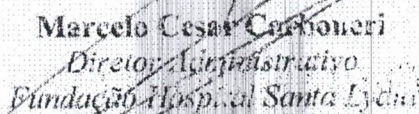 Marcelo Cesar Carboneri
Diretor Administrativo
Fundação Hospital Santa Lydia